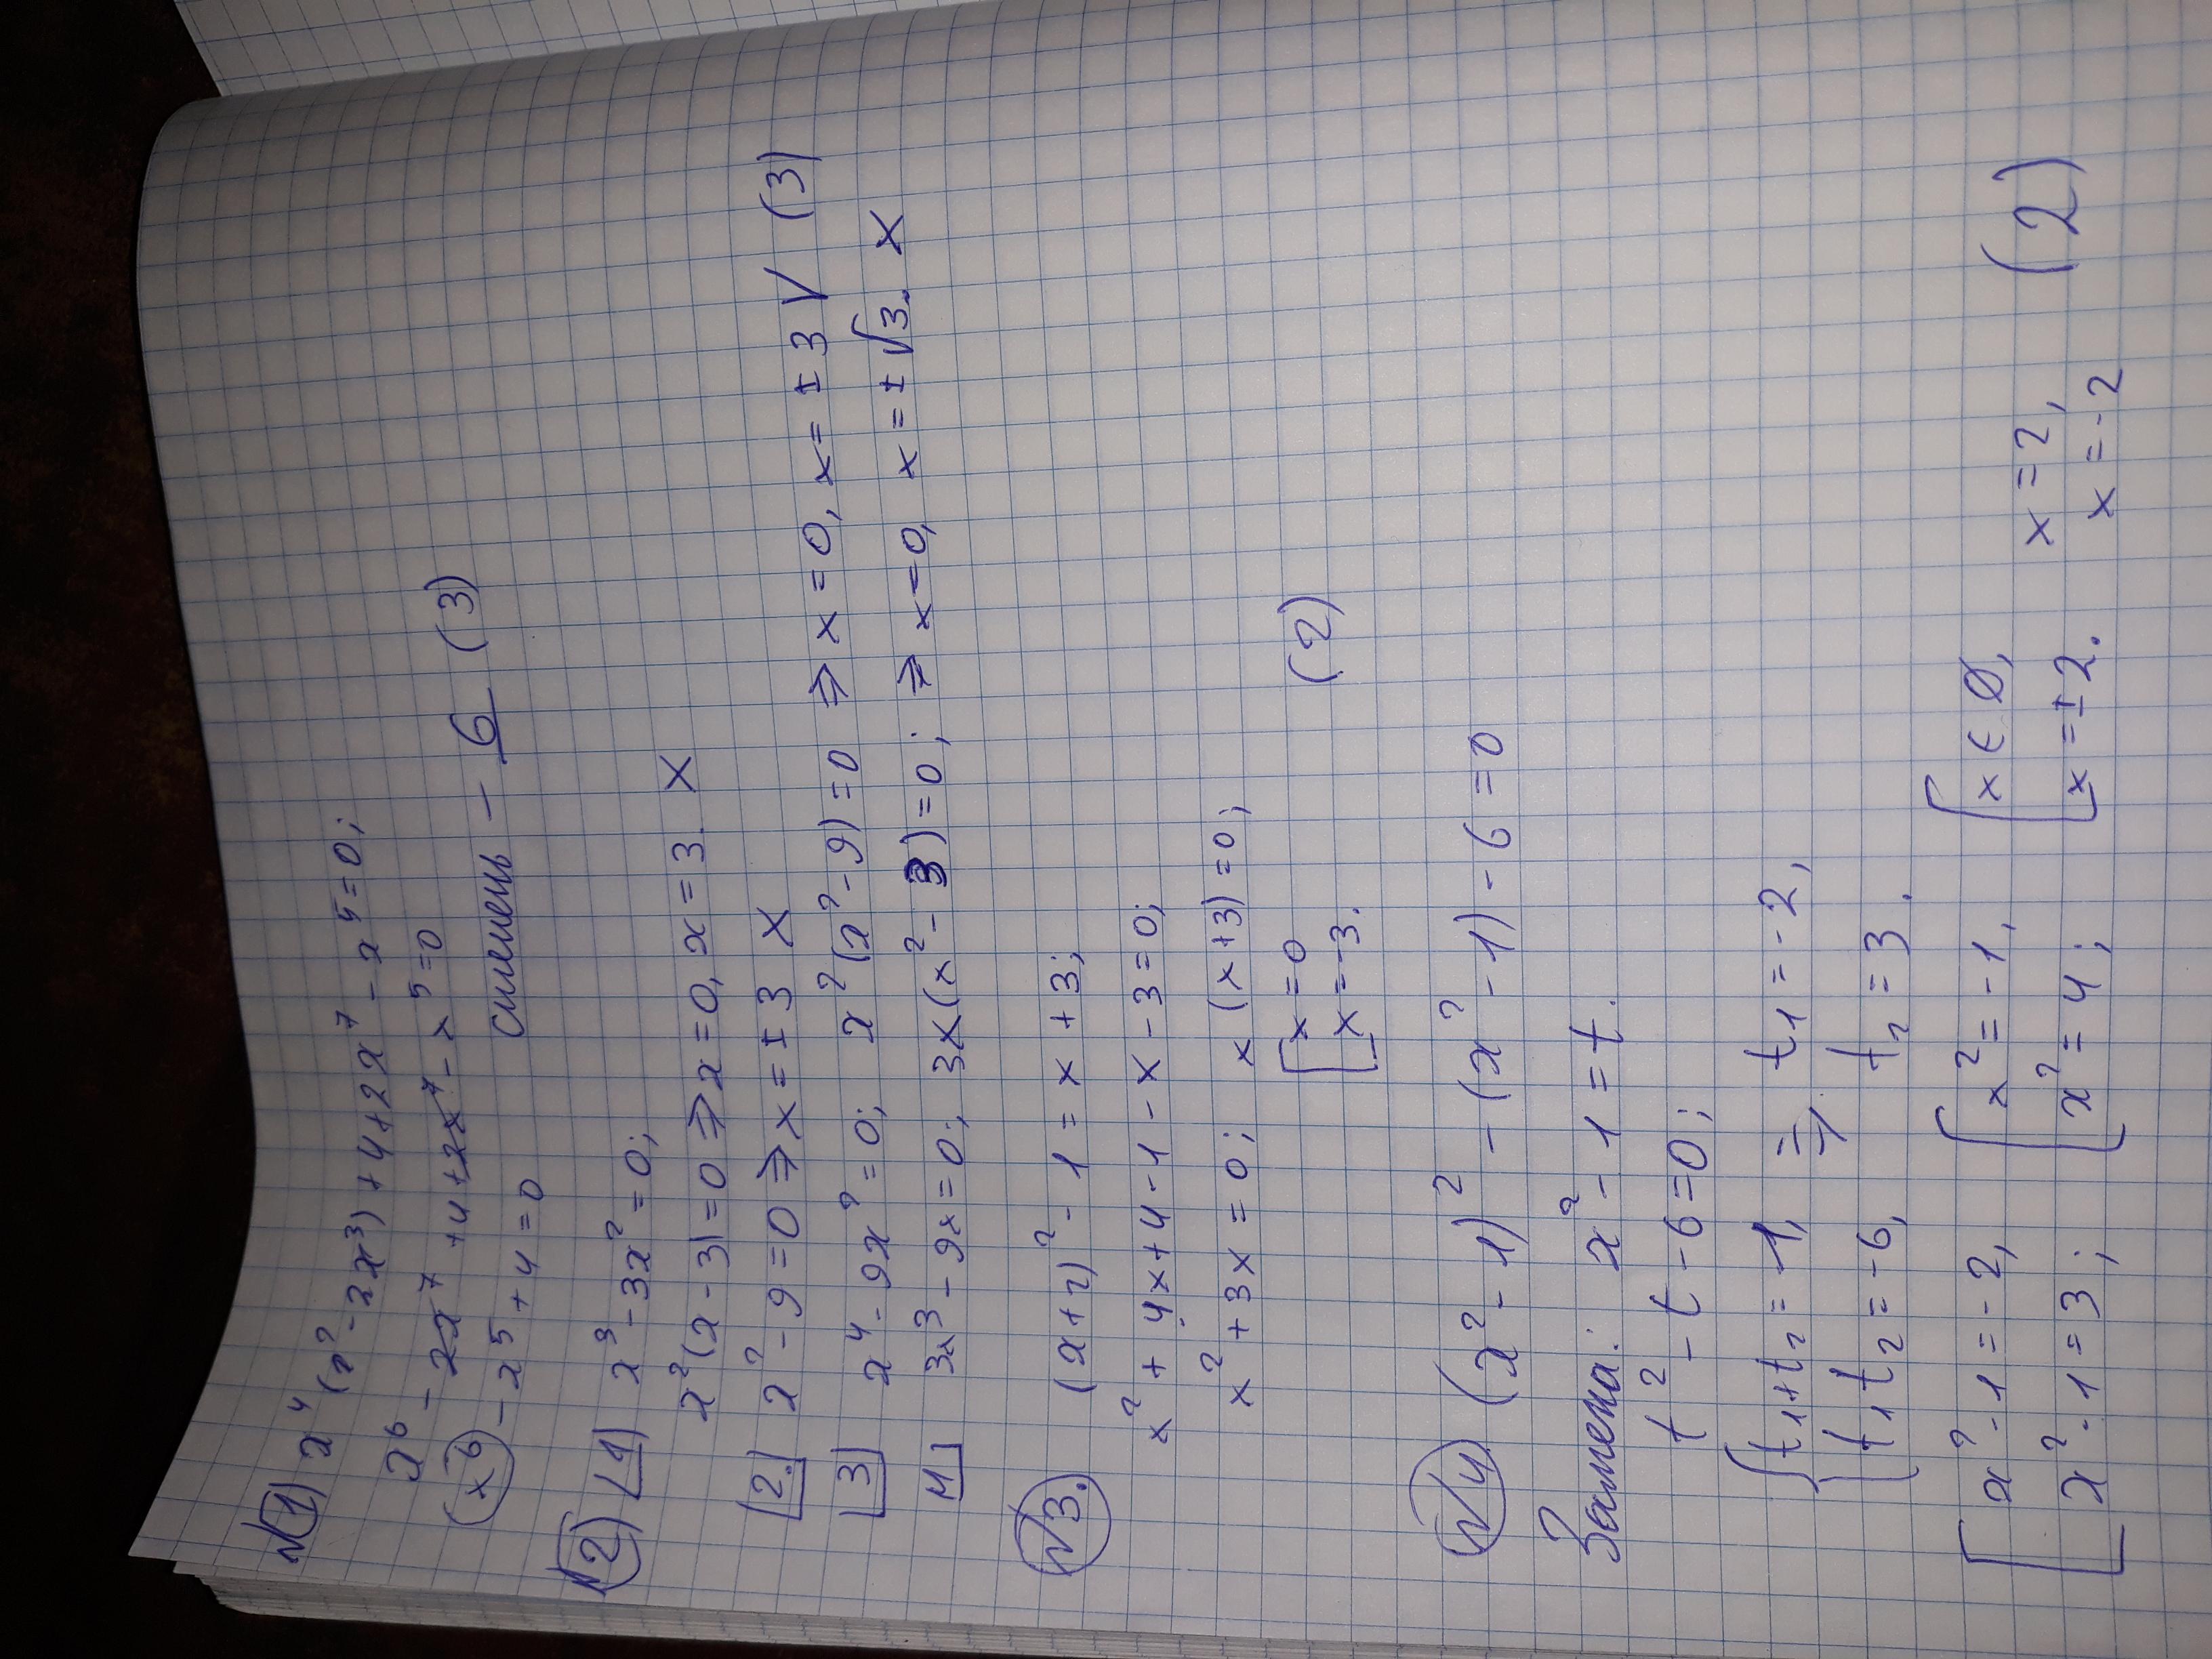 N1) x⁴(x²-2x³)+4+2x⁷-x⁵=0;
x⁶-2x⁷+4+2x⁷-x⁵=0
(x⁶)-x⁵+4=0 степень - 6 (3)
N2) 1 x³-3x²=0;
x²(x-3)=0 => x=0, x=3. X
2. x²-9=0 => x=±3 X
3 x⁴-9x²=0; x²(x²-9)=0 => x=0, x=±3 V (3)
4 3x³-9x=0; 3x(x²-3)=0; => x=0, x=±√3. X
N3. (x+2)²-1=x+3;
x²+4x+4-1-x-3=0;
x²+3x=0; x(x+3)=0;
[x=0
[x=-3. (2)
N4 (x²-1)²-(x²-1)-6=0
Замена: x²-1=t.
t²-t-6=0;
{t₁+t₂=1, => t₁=-2,
{t₁t₂=-6, t₂=3.
[x²-1=-2, [x²=-1, [x∈∅,
[x²-1=3; [x²=4; [x=±2. x=2, (2)
x=-2